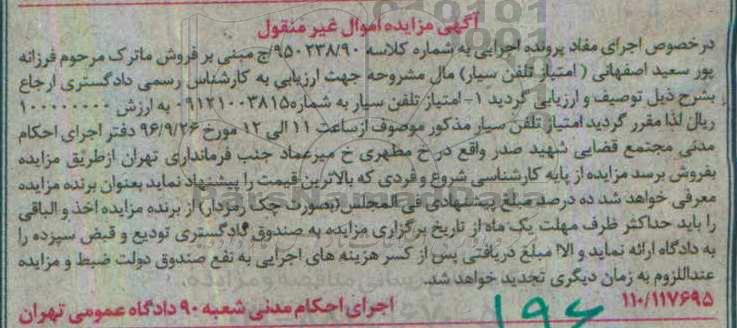 آگهی مزایده اموال غیر منقول
درخصوص اجرای مفاد پرونده اجرایی به شماره کلاسه ۹۵۰۲۳۸/۹۰/ج مبنی بر فروش ماترک مرحوم فرزانه
پور سعید اصفهانی ( امتیاز تلفن سیار) مال مشروحه جهت ارزیابی به کارشناس رسمی دادگستری ارجاع
بشرح ذیل توصیف و ارزیابی گردید ۱- امتیاز تلفن سیار به شماره ۰۹۱۲۱۰۰۳۸۱۵ به ارزش ۱۰۰۰۰۰۰۰۰
ریال لذا مقرر گردید امتیاز تلفن سیار مذکور موصوف از ساعت ۱۱ الی ۱۲ مورخ ۹۶/۹/۲۶ دفتر اجرای احکام
مدنی مجتمع قضایی شهید صدر واقع در خ مطهری خ میرعماد جنب فرمانداری تهران ازطریق مزایده
بفروش برسد مزایده از پایه کارشناسی شروع و فردی که بالاترین قیمت را پیشنهاد نماید بعنوان برنده مزایده
معرفی خواهد شد ده درصد مبلغ پیشنهادی فی المجلس (بصورت چک رمزدار) از برنده مزایده اخذ و الباقی
را باید حداکثر ظرف مهلت یک ماه از تاریخ برگزاری مزایده به صندوق دادگستری تودیع و قبض سپرده را
به دادگاه ارائه نماید و الا مبلغ دریافتی پس از کسر هزینه های اجرایی به نفع صندوق دولت ضبط و مزایده
عنداللزوم به زمان دیگری تجدید خواهد شد.
۱۱۰/۱۱۷۶۹۵ اجرای احکام مدنی شعبه ۹۰ دادگاه عمومی تهران
۱۹۶